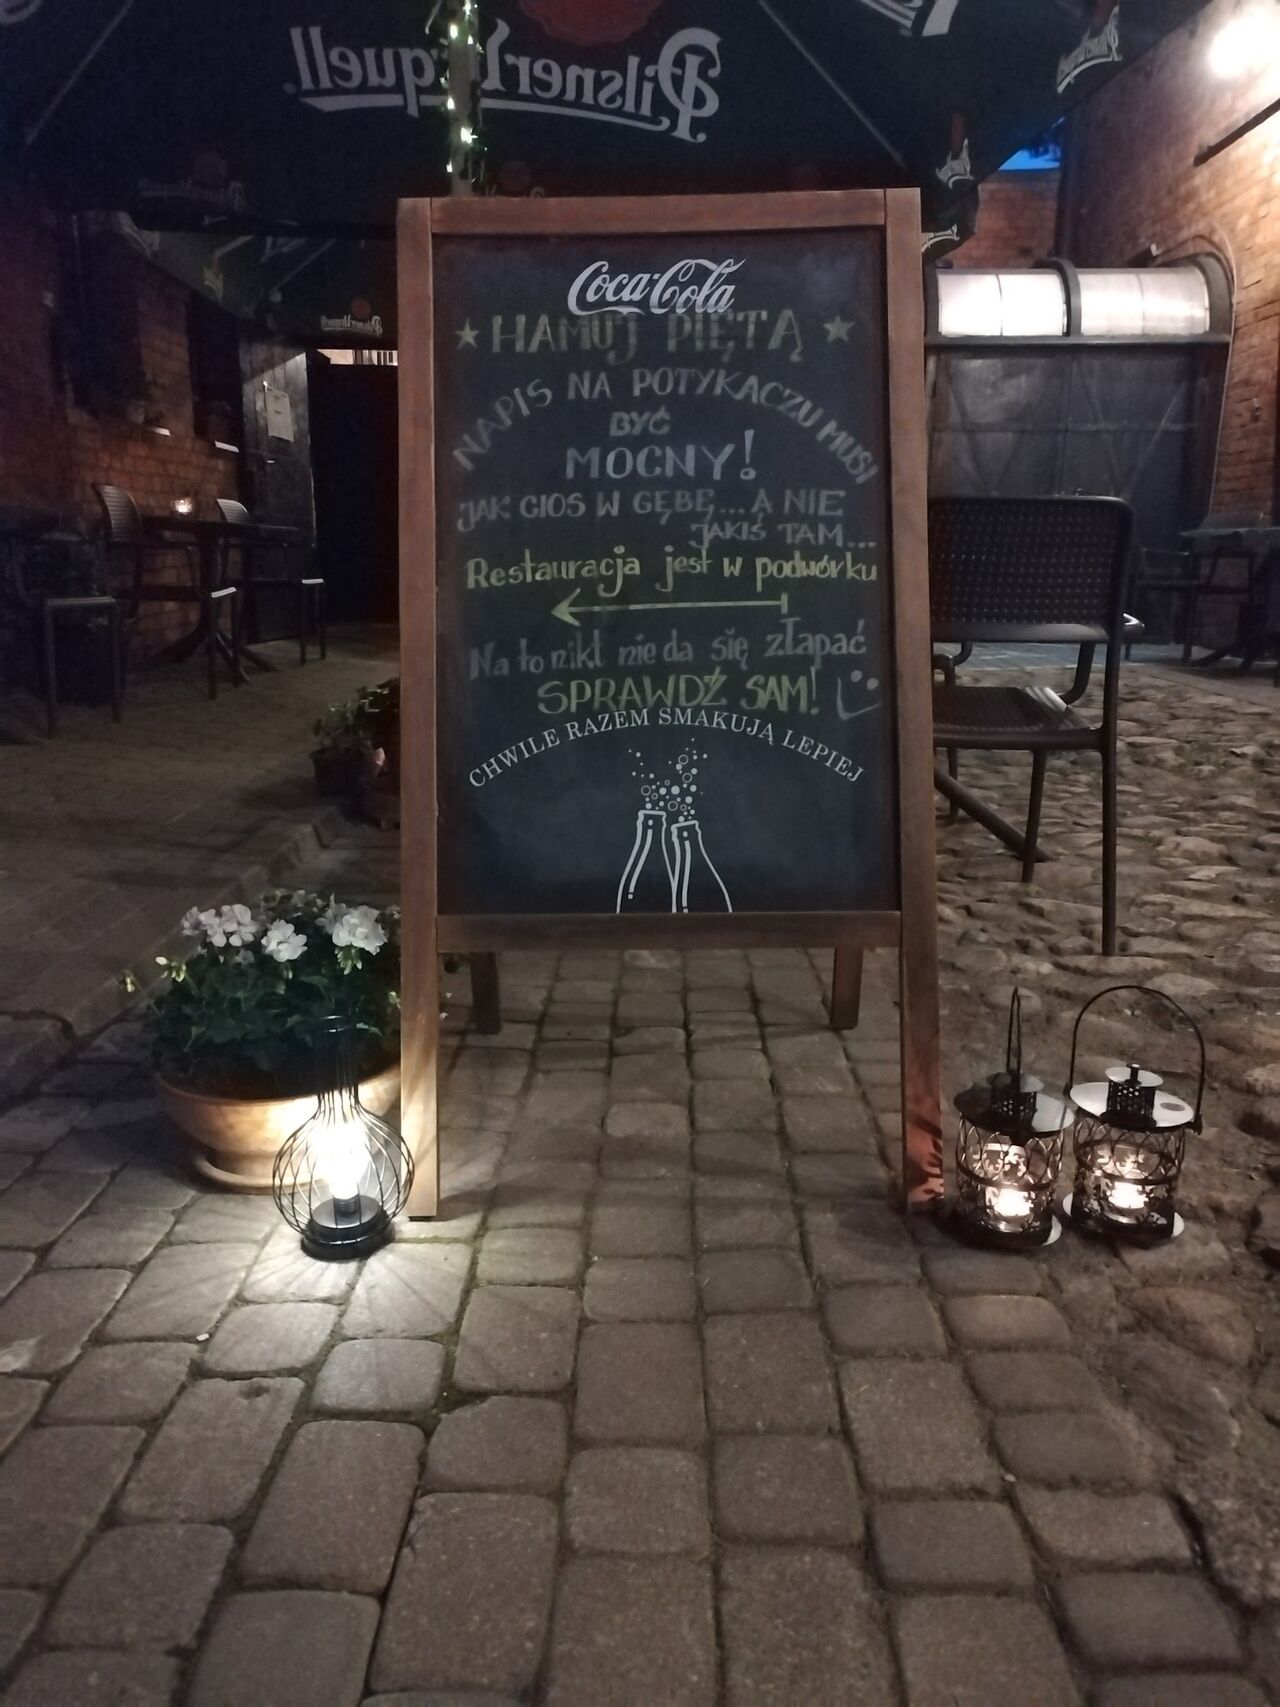 Pilsner Urquell
Coca-Cola
HAMUJ PIĘTĄ
NAPIS NA POTYKACZU MUSI
BYĆ
MOCNY!
JAK CIOS W GĘBĘ... A NIE
JAKIŚ TAM...
Restauracja jest w podwórku
Na to nikt nie da się złapać
SPRAWDŹ SAM!
CHWILE RAZEM SMAKUJĄ LEPIEJ